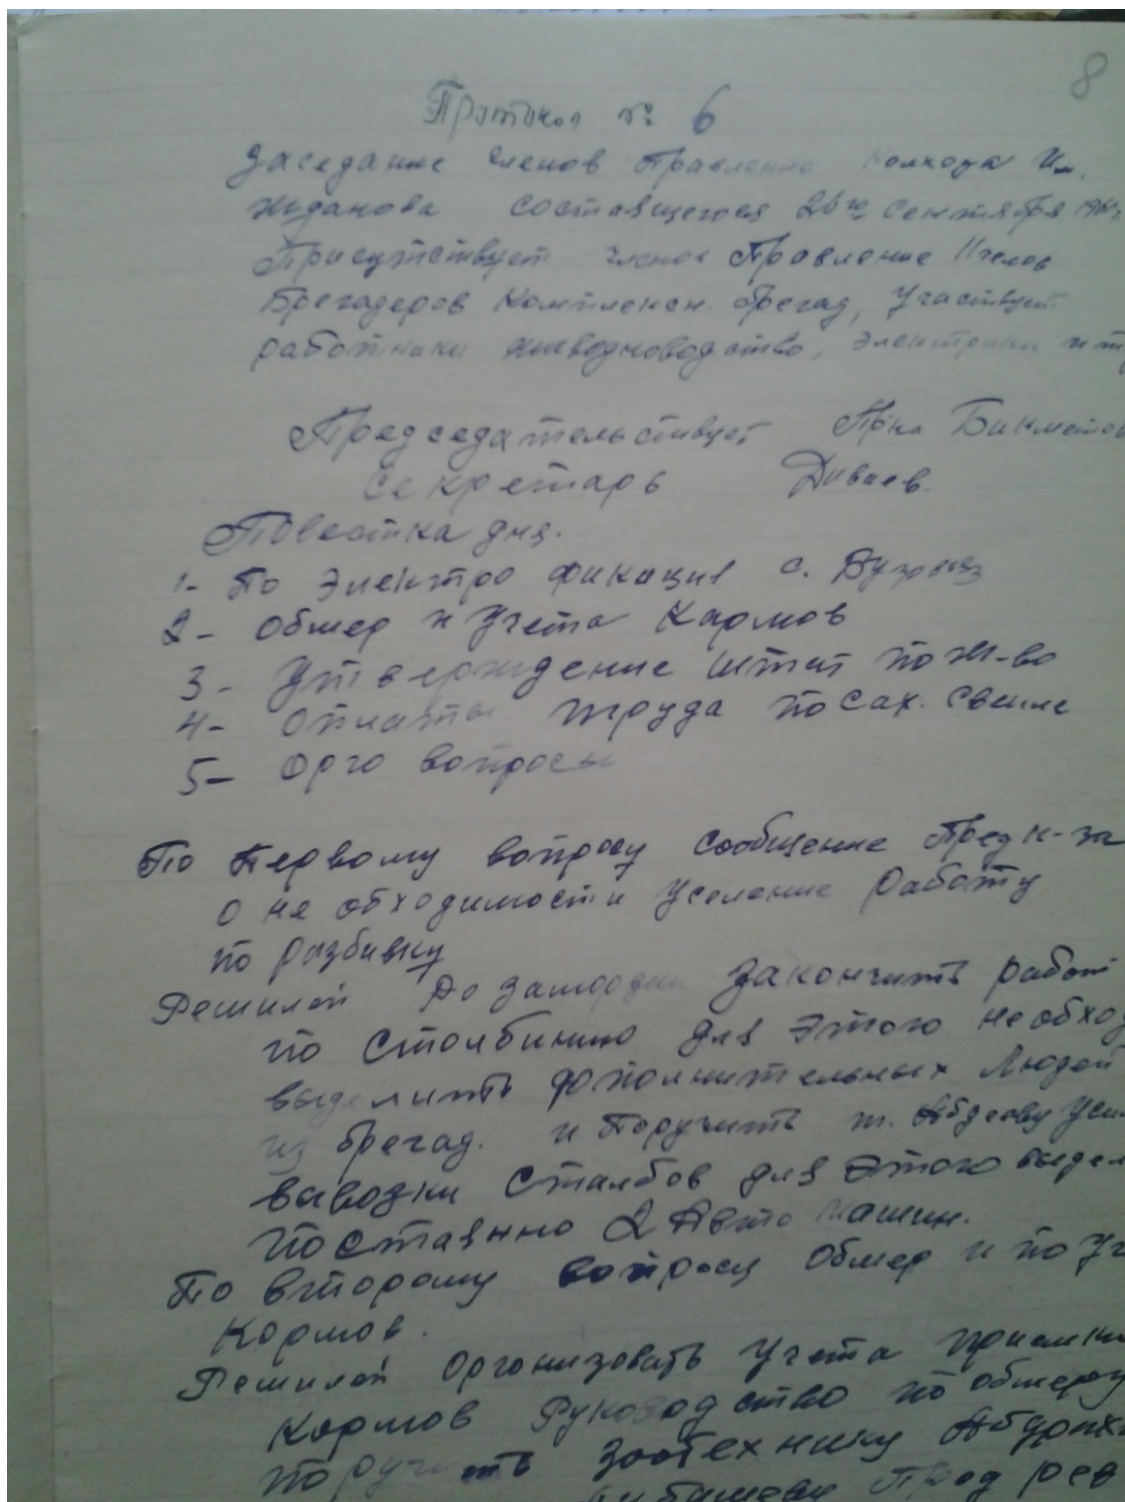 8
Протокол № 6
Заседание членов Правление Колхоза Им.
Жданова состоящегося 26го Сентября
Присутствует членов Правление
Брегадеров Комплексн. брегад, Участвует
работники животноводство, электрики и
Председательствует Бикметов
Секретарь Диваев.
Повестка дня.
1- По Электрофикация с.
2- Обмер и Учета Кармов
3- Утверждение штат по Ж-во
4- Оплаты труда по сах. свекле
5- Орго вопросы
По Первому вопросу сообщение Пред к-за
о не обходимости Уселение Работу
по разбивку
Решили До закончить работ
по столбинию для этого необход
выделить дополнительных Людей
из брегад. и Поручить т. Абдееву Уси
вывозки Сталбов для Этого выдел
поставнно 2 Авто машин.
По второму вопросу Обмер и по Уч
Кормов.
Решили Организовать Учета приемки
Кормов Руководство по обмеру
поручить зоотехнику
Пред рев